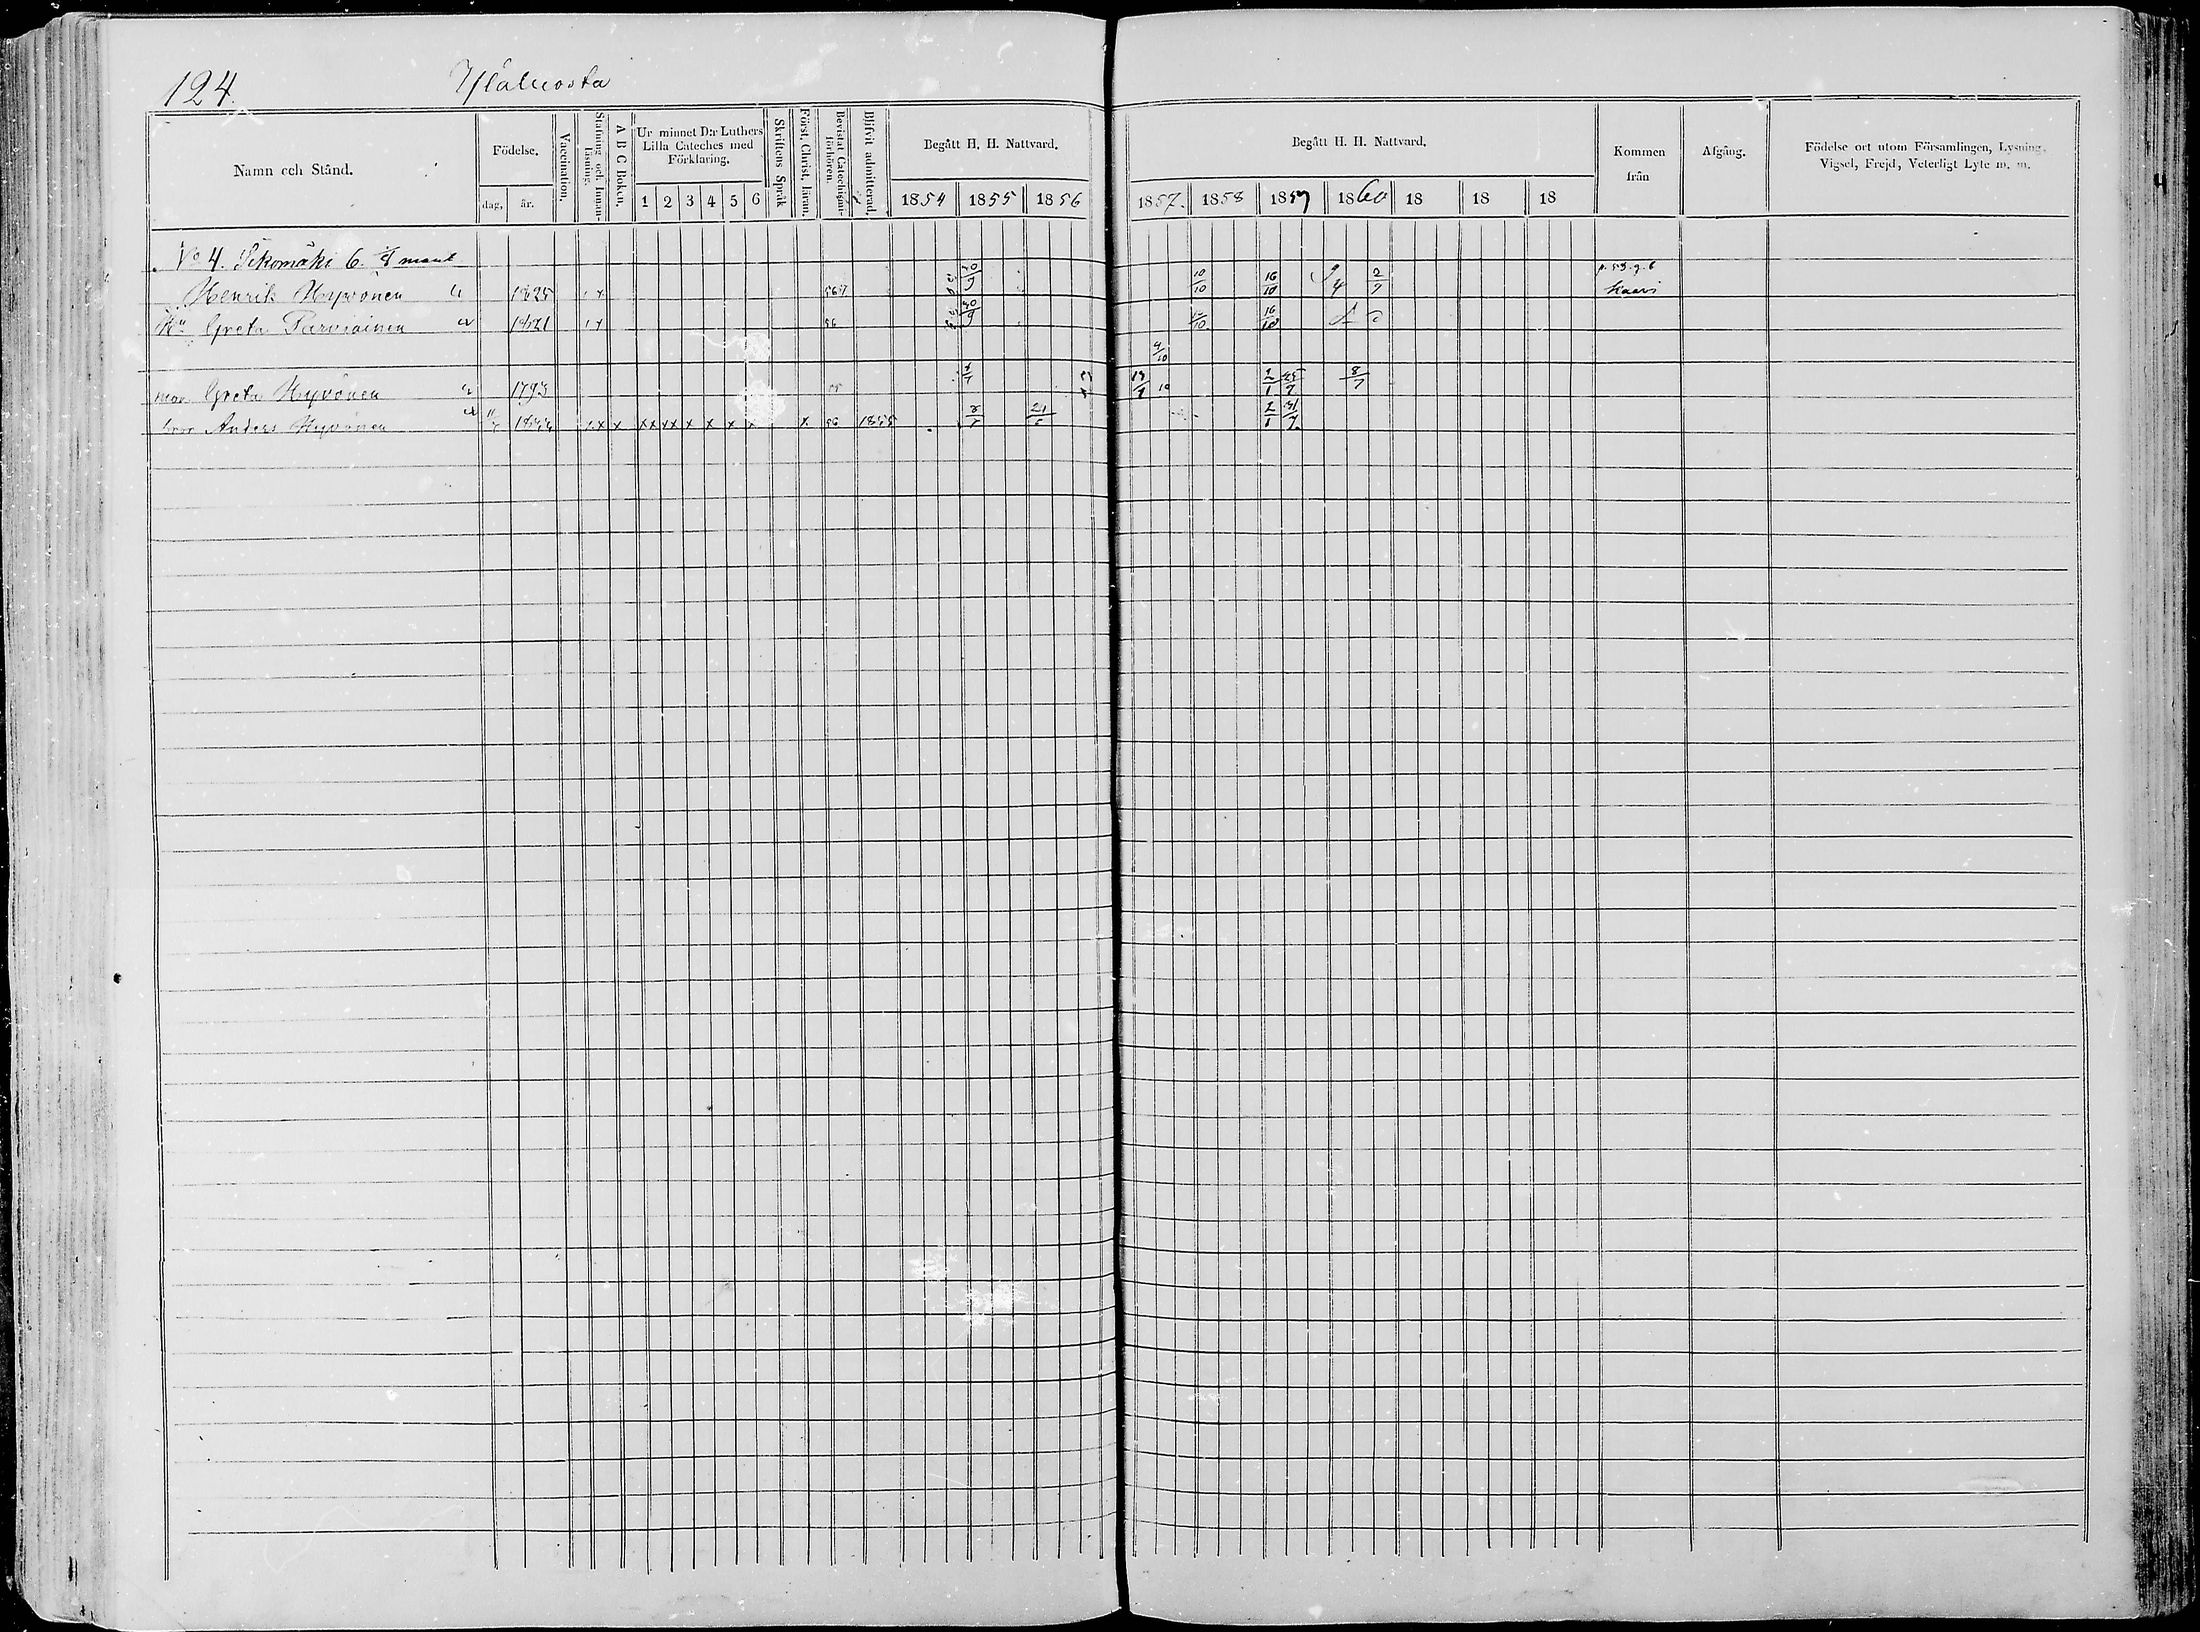 124.
Yläluosta
Namn och Stånd.
Födelse.
dag, år.
Vaccination.
Stafning och Innanläsning.
A B C Boken.
Ur minnet D:r Luthers Lilla Cateches med Förklaring.
1 2 3 4 5 6
Skriftens Språk
Först. Christ. läran.
Bevistat Catechismi-förhören.
Blifvit admitterad.
Begått H. H. Nattvard.
1854 1855 1856
Begått H. H. Nattvard.
1857. 1858 1859 1860 18 18 18
Kommen från
Afgång.
Födelse ort utom Församlingen, Lysning, Vigsel, Frejd, Veterligt Lyte m. m.
No 4. Sikomäki 6. 1/8 mant
Henrik Hyvönen 1825 567 30/9 10/10 16/10 2/7 p. 59. g. 6 Kaavi
Hu Greta Parviainen 1821 56 30/9 16/10
4/10
mor Greta Hyvönen 1793 8/7
bror Anders Hyvönen x xx xx x x x x x 56 1855 21